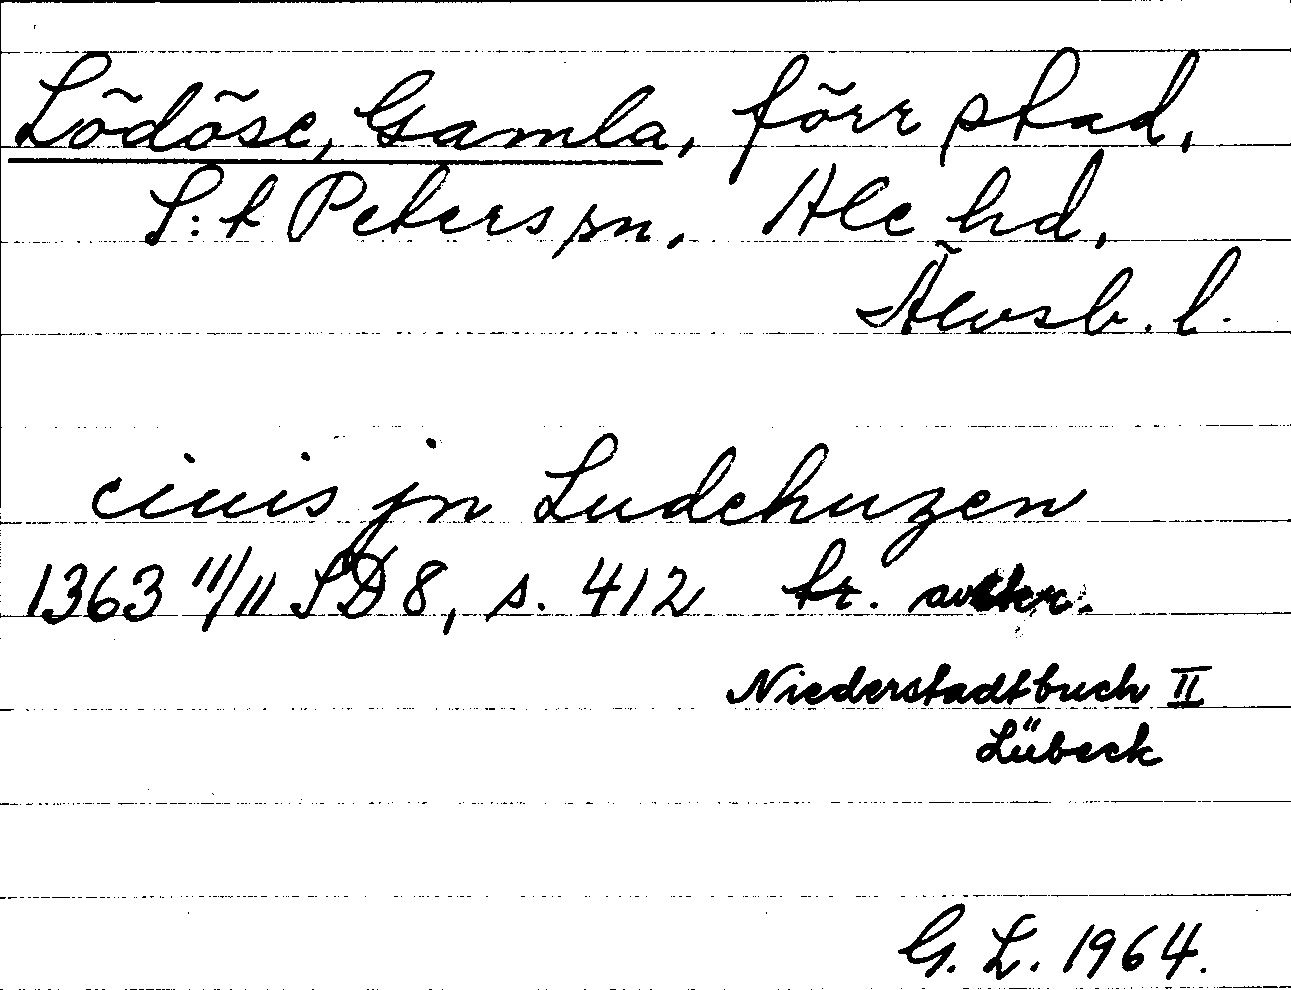 Lödöse, Gamla, förr stad,
S:t Peters sn, Ale hd,
Älvsb. l.
ciuis jn Ludehuzen
1363 11/11 SD 8, s. 412 tr.
Niederstadtbuch II
Lübeck
G. L. 1964.